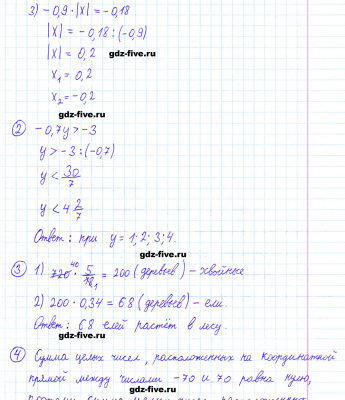 3) -0,9 · |x| = -0,18
|x| = -0,18 : (-0,9)
|x| = 0,2
gdz-five.ru
x₁ = 0,2
x₂ = -0,2
gdz-five.ru
② -0,7y > -3
y > -3 : (-0,7)
gdz-five.ru
y < 30/7
y < 4 2/7
Ответ: при y = 1; 2; 3; 4.
gdz-five.ru
③ 1) 720 40 · 5/18 1 = 200 (деревьев) - хвойные
gdz-five.ru
2) 200 · 0,34 = 68 (деревьев) - ели.
Ответ: 68 елей растёт в лесу.
gdz-five.ru
④ Сумма целых чисел, расположенных на координатной
прямой между числами -70 и 70 равна нулю,
gdz-five.ru